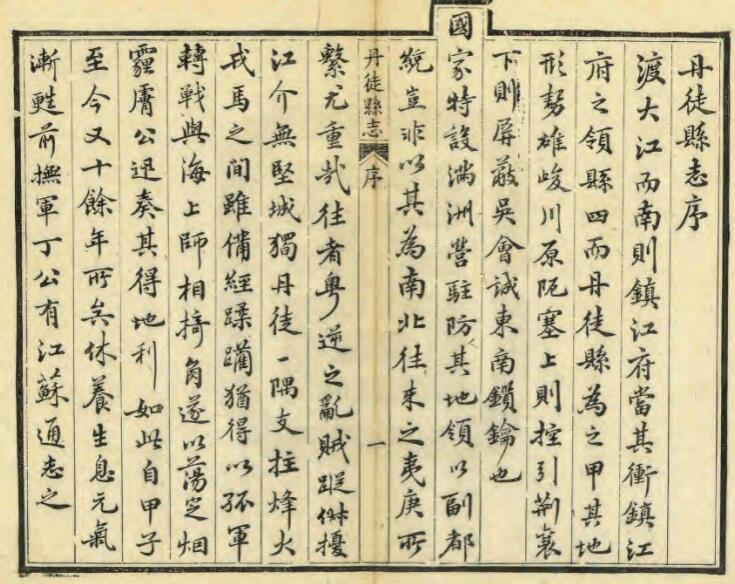 丹徒縣志序
渡大江而南則鎮江府當其衝鎮江
府之領縣四而丹徒縣為之甲其地
形勢雄峻川原阨塞上則控引荆襄
下則屏蔽吳會誠東南鎖鑰也
國家特設滿洲營駐防其地領以副都
統豈非以其為南北往來之夷庚所
丹徒縣志 序 一
繫尤重哉往者粵逆之亂賊蹤俶擾
江介無堅城獨丹徒一隅支拄烽火
戎馬之間雖備經蹂躪猶得以孤軍
轉戰與海上師相掎角遂以蕩定烟
霾膚公迅奏其得地利如此自甲子
至今又十餘年所矣休養生息元氣
漸甦前撫軍丁公有江蘇通志之